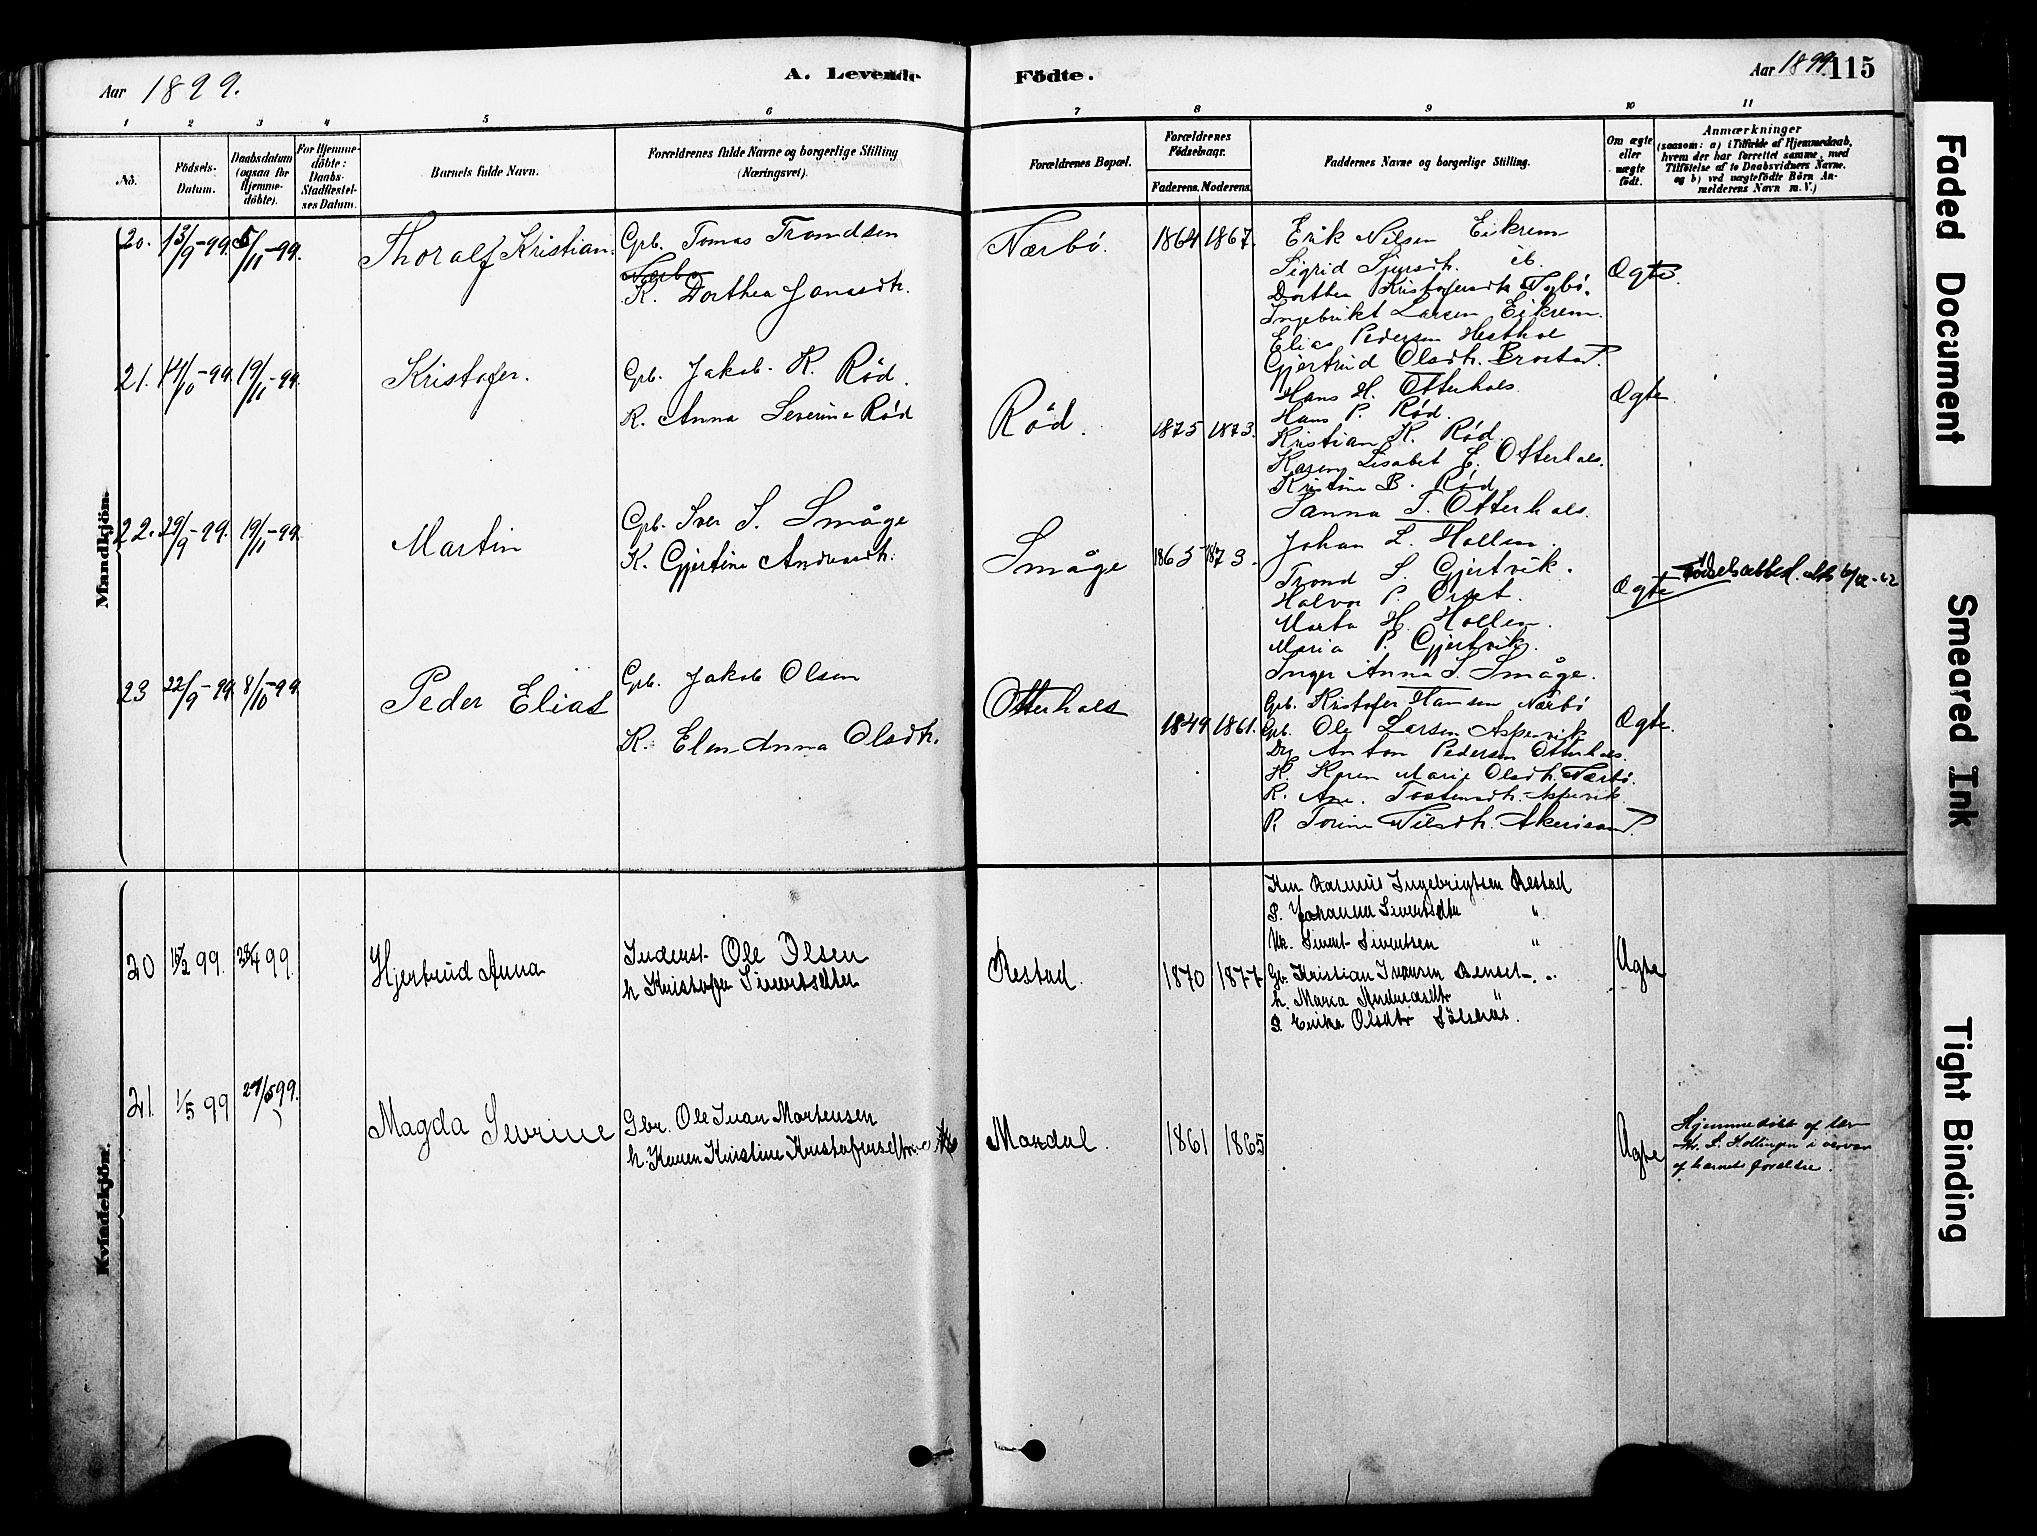 Aar 1899.
A. Levende
Födte.
Aar 1899.
115
1 2 3 4 5 6 7 8 9 10 11
No.
Födsels-Datum.
Daabsdatum (ogsaa for Hjemme-döbte).
For Hjemme-döbte: Daabs-Stadfæstel-ses Datum.
Barnets fulde Navn.
Forældrenes fulde Navne og borgerlige Stilling (Næringsvei).
Forældrenes Bopæl.
Forældrenes Födselsaar.
Faderens. Moderens.
Faddernes Navne og borgerlige Stilling.
Om ægte eller uægte födt.
Anmærkninger
(saasom: a) i Tilfælde af Hjemmedaab, hvem der har forrettet samme, med Tilföielse af to Daabsvidners Navne. og b) ved uægtefödte Börn An-melderens Navn m.V.)
Mandkjön.
20. 13/9-99. 5/11-99. Thoralf Kristian.
Gpb. Tomas Trondsen
Nærbø
K. Dorthea Jonasdtr.
Nærbö. 1864 1867.
Erik Nilsen Eikrem
Sigrid Sjursdtr. ib.
Dorthea Kristofersdtr.
Ingebrikt Larsen Eikrem.
Elias Pedersen Hesthol
Gjertrud Olsdtr. Brostad.
Ægte.
21. 14/10-99 19/11-99. Kristofer.
Gpb. Jakob K. Rød.
K. Anna Severine Rød
Rød. 1875 1873.
Hans H. Otterhals.
Hans P. Rød.
Kristian K. Rød.
Karen Lisabet E. Otterhals.
Kristine B. Rød
Sanna T. Otterhals.
Ægte.
22. 29/9-99. 19/11-99. Martin
Gpb. Iver S. Småge
K. Gjertine Andreasdtr.
Småge 1865 1873.
Johan L. Hollen.
Trond S. Gjertvik.
Halvor P. Orset.
Marta H. Hollen.
Maria P. Gjertvik.
Inger Anna S. Småge.
Ægte Fødselsattest.
23 22/9-99. 8/10-99 Peder Elias
Gpb. Jakob Olsen
K. Elen Anna Olsdtr.
Otterhals 1849 1861.
Gpb. Kristofer Hansen Nærbö
Gpb. Ole Larsen Aspervik
Drg Anton Pedersen Otterhals.
K. Karen Marie Olsdtr. Nærbö.
K. Ane Tostensdtr. Aspervik.
P. Torine Nilsdtr. Akerisand.
Ægte.
Kvindekjön.
20 15/2 99. 23/4 99. Hjertrud Anna
Inderst Ole Olsen
h Kristofa Sivertsdtter
Restad. 1870 1877
Km Rasmus Ingebrigtsen Restad
P. Johanna Sivertsdtr "
Uk. Sivert Sivertsen "
Gr. Kristian Iversen Benset
h. Maria Andreasdtr "
P. Erika Olsdtr Sölsnes.
Ægte
21. 1/5 99 27/5 99. Magda Sevrine
Gbr. Ole Iver Mortensen
h. Karen Kristine Kristofersdtr
Mordal. 1861 1865
Ægte
Hjemmedøbt af lær
M. S. Hollingen i nærvær
af barnets forældre.
Faded Document
Smeared Ink
Tight Binding